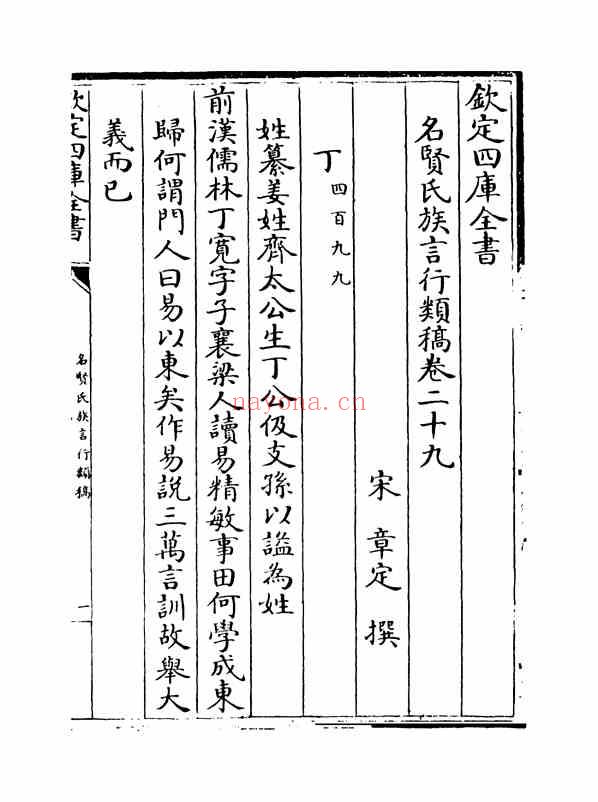 欽定四庫全書
名賢氏族言行類稿卷二十九
宋 章定 撰
丁 四百九九
姓纂姜姓齊太公生丁公伋支孫以謚為姓
前漢儒林丁寛字子襄梁人讀易精敏事田何學成東
歸何謂門人曰易以東矣作易説三萬言訓故舉大
義而已
欽定四庫全書
名賢氏族言行類稿
nayona.cn